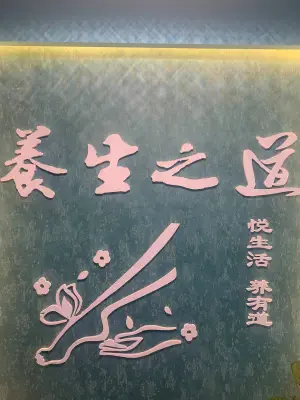 養生之道
悦生活 养有道